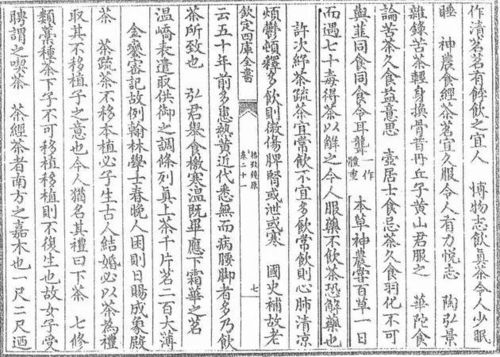 作清茗茗有餑飲之宜人　博物志飲真茶令人少眠
睡　神農食經茶茗宜久服令人有力悅志　陶弘景
雜錄苦茶輕身換骨昔丹丘子黃山君服之　華陀食
論苦茶久食益意思　壺居士食忌茶久食羽化不可
與韮同食同食令耳聾一作體重　本草神農嘗百草一日
而遇七十毒得茶以解之今人服藥不飲茶恐解藥也
許次紓茶疏茶宜常飲不宜多飲常飲則心肺清凉
煩鬱頓釋多飲則微傷脾腎或泄或寒　國史補故老
欽定四庫全書
格致鏡原
卷二十一
七
云五十年前多患熱黃近代悉無而病腰脚者多乃飲
茶所致也　弘君舉食檄寒溫既畢應下霜華之茗
溫嶠表遣取供御之調條列真上茶千片茗二百大薄
金鑾密記故例翰林學士春晚人困則日賜成象殿
茶　茶疏茶不移本植必子生古人結婚必以茶為禮
取其不移植子之意也今人猶名其禮曰下茶　七修
類藁種茶下子不可移植移植則不復生也故女子受
聘謂之喫茶　茶經茶者南方之嘉木也一尺二尺迺